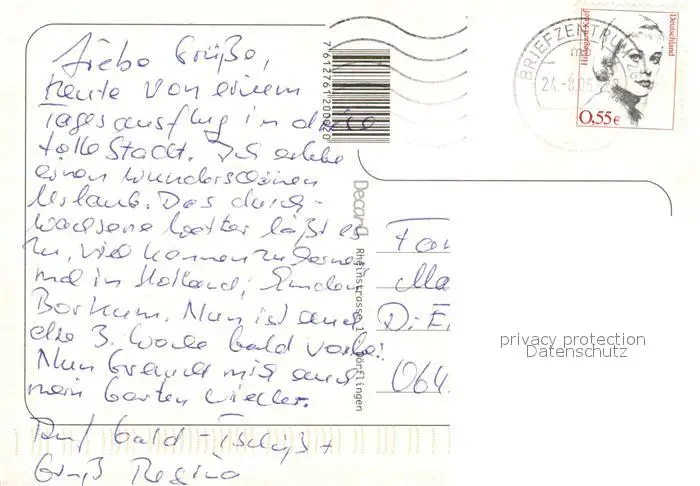 Liebe Grüße,
heute von einem
Tagesausflug in diese
tolle Stadt. Ich erlebe
einen wunderschönen
Urlaub. Das durch-
wachsene Wetter läßt es
zu, viel kennenzulernen
mal in Holland, Emden
Borkum. Nun ist auch
die 3. Woche bald vorbei.
Nun braucht mich auch
mein Garten wieder.
Auf bald - Tschüß +
Gruß Regina
7612761200020
Decard
Rheinstrasse 1
Dörflingen
BRIEFZENTRUM
Hildegard Knef
Deutschland
0,55€
Fam
Ma
D. E
064
privacy protection
Datenschutz